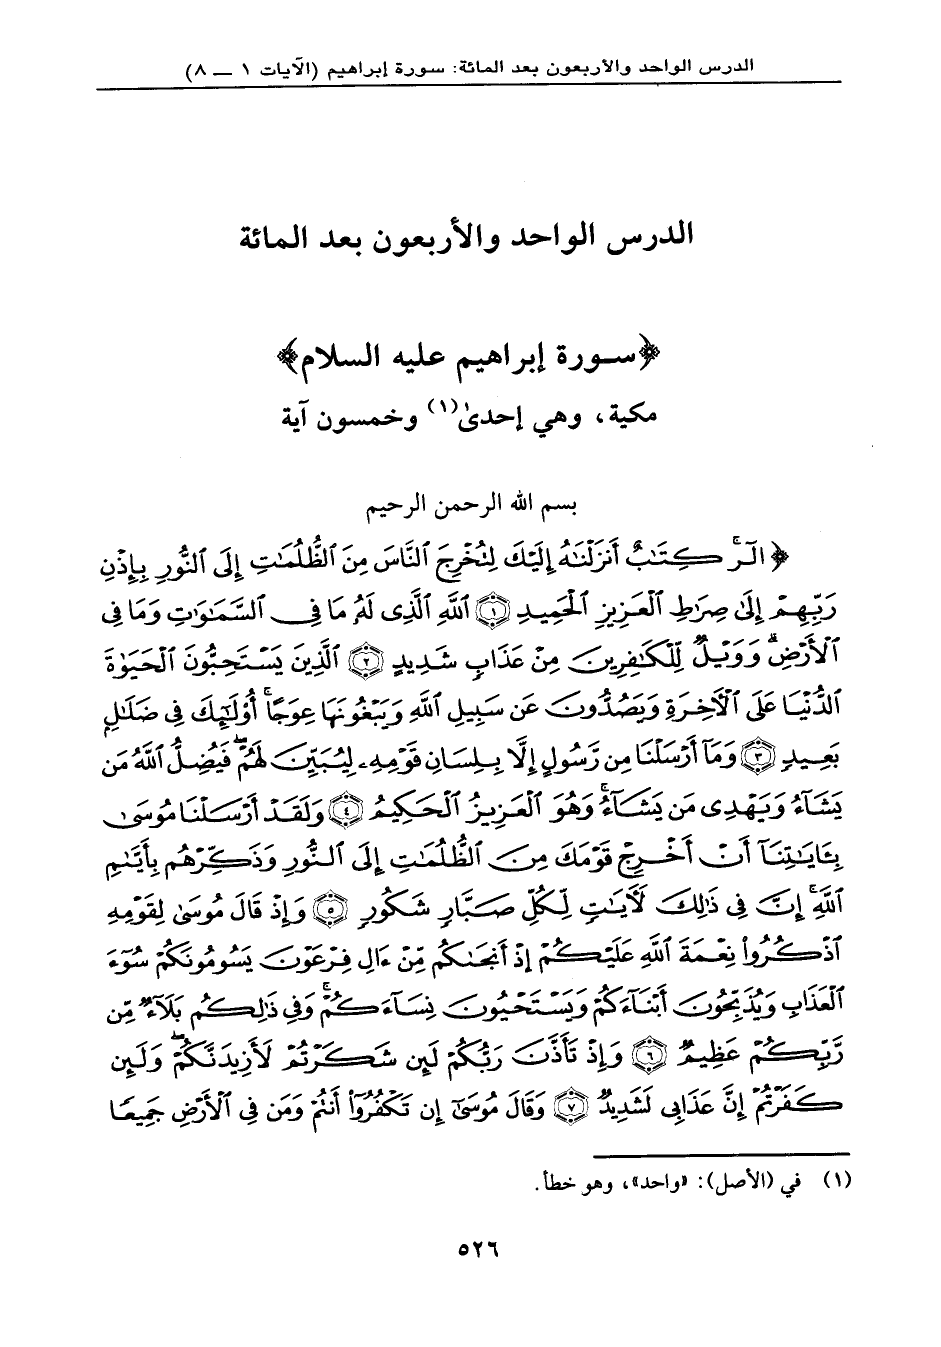 الدرس الواحد والأربعون بعد المائة: سورة إبراهيم (الآيات ١ — ٨)
الدرس الواحد والأربعون بعد المائة
﴿سورة إبراهيم عليه السلام﴾
مكية، وهي إحدىٰ(١) وخمسون آية
بسم الله الرحمن الرحيم
﴿الٓرۚ كِتَٰبٌ أَنزَلْنَٰهُ إِلَيْكَ لِتُخْرِجَ ٱلنَّاسَ مِنَ ٱلظُّلُمَٰتِ إِلَى ٱلنُّورِ بِإِذْنِ
رَبِّهِمْ إِلَىٰ صِرَٰطِ ٱلْعَزِيزِ ٱلْحَمِيدِ ١ ٱللَّهِ ٱلَّذِى لَهُۥ مَا فِى ٱلسَّمَٰوَٰتِ وَمَا فِى
ٱلْأَرْضِۗ وَوَيْلٌ لِّلْكَٰفِرِينَ مِنْ عَذَابٍ شَدِيدٍ ٢ ٱلَّذِينَ يَسْتَحِبُّونَ ٱلْحَيَوٰةَ
ٱلدُّنْيَا عَلَى ٱلْءَاخِرَةِ وَيَصُدُّونَ عَن سَبِيلِ ٱللَّهِ وَيَبْغُونَهَا عِوَجًاۚ أُو۟لَٰٓئِكَ فِى ضَلَٰلٍۭ
بَعِيدٍ ٣ وَمَآ أَرْسَلْنَا مِن رَّسُولٍ إِلَّا بِلِسَانِ قَوْمِهِۦ لِيُبَيِّنَ لَهُمْۖ فَيُضِلُّ ٱللَّهُ مَن
يَشَآءُ وَيَهْدِى مَن يَشَآءُۚ وَهُوَ ٱلْعَزِيزُ ٱلْحَكِيمُ ٤ وَلَقَدْ أَرْسَلْنَا مُوسَىٰ
بِـَٔايَٰتِنَآ أَنْ أَخْرِجْ قَوْمَكَ مِنَ ٱلظُّلُمَٰتِ إِلَى ٱلنُّورِ وَذَكِّرْهُم بِأَيَّىٰمِ
ٱللَّهِۚ إِنَّ فِى ذَٰلِكَ لَءَايَٰتٍ لِّكُلِّ صَبَّارٍ شَكُورٍ ٥ وَإِذْ قَالَ مُوسَىٰ لِقَوْمِهِ
ٱذْكُرُوا۟ نِعْمَةَ ٱللَّهِ عَلَيْكُمْ إِذْ أَنجَىٰكُم مِّنْ ءَالِ فِرْعَوْنَ يَسُومُونَكُمْ سُوٓءَ
ٱلْعَذَابِ وَيُذَبِّحُونَ أَبْنَآءَكُمْ وَيَسْتَحْيُونَ نِسَآءَكُمْۚ وَفِى ذَٰلِكُم بَلَآءٌ مِّن
رَّبِّكُمْ عَظِيمٌ ٦ وَإِذْ تَأَذَّنَ رَبُّكُمْ لَئِن شَكَرْتُمْ لَأَزِيدَنَّكُمْۖ وَلَئِن
كَفَرْتُمْ إِنَّ عَذَابِى لَشَدِيدٌ ٧ وَقَالَ مُوسَىٰٓ إِن تَكْفُرُوٓا۟ أَنتُمْ وَمَن فِى ٱلْأَرْضِ جَمِيعًا
(١) في (الأصل): «واحد»، وهو خطأ.
٥٢٦